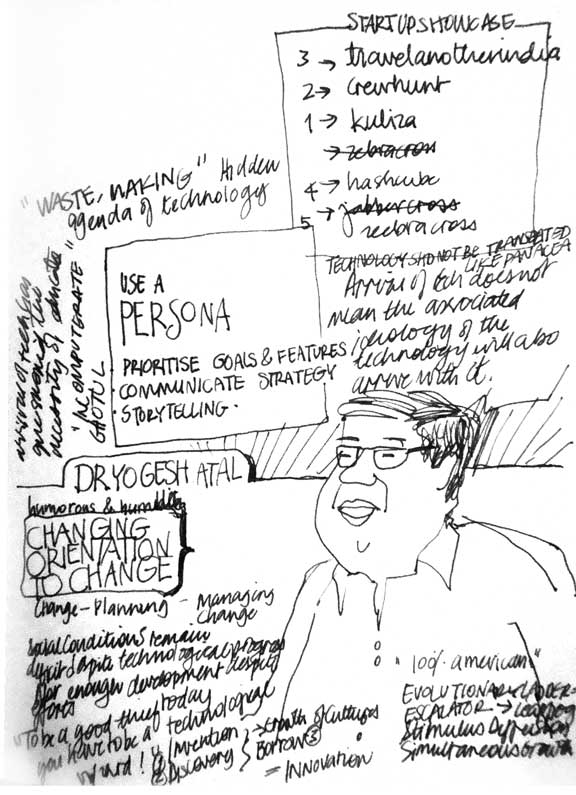 STARTUP SHOWCASE
3 → travelanotherindia
2 → crewhunt
1 → kuliza
→ zebracross
4 → hashcube
5 → jabbercross
zeebracross
"WASTE, MAKING" Hidden
agenda of technology
USE A
PERSONA
PRIORITISE GOALS & FEATURES
COMMUNICATE STRATEGY
STORYTELLING.
TECHNOLOGY SHD NOT BE
LIKE PANACEA
Arrival of tech does not
mean the associated
ideology of the
technology will also
arrive with it.
arrival of tech has
questioned the
necessity of
GHOTUL
DR YOGESH ATAL
humorous &
CHANGING
ORIENTATION
TO CHANGE
Change - Planning - Managing
Change
Social Conditions remain
despite technological progress
Not enough development despite
efforts
"To be a good thief today
you have to be a technological
wizard!"
① Invention
② Discovery
→ Growth of Cultures
Borrow
= INNOVATION
"100% american"
EVOLUTIONARY LADDER =
ESCALATOR → Leapfrog
Stimulus Diffusion
Simultaneous Growth